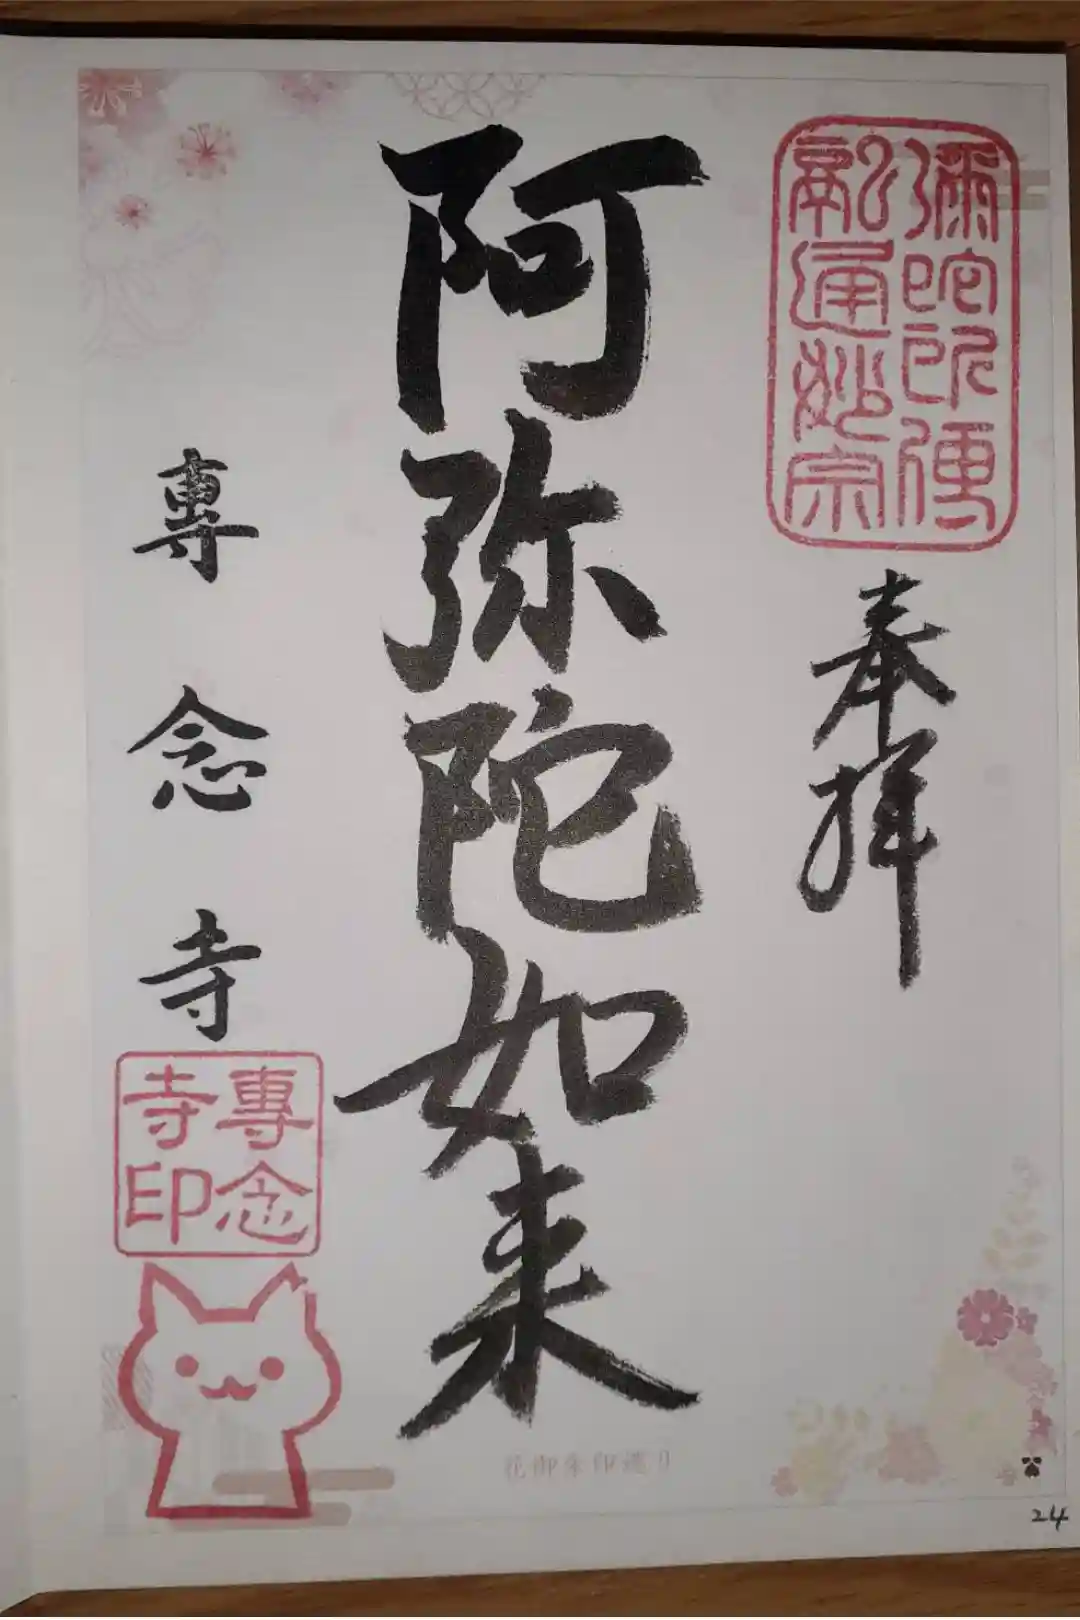 彌陀所傳
融通妙宗
奉拝
阿弥陀如来
專念寺
專念
寺印
花御朱印巡り
24